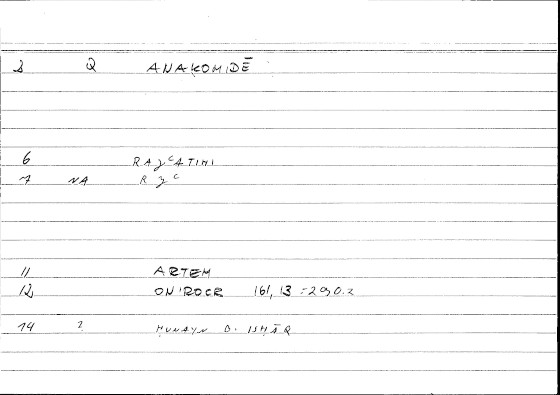 2 Q ANAKOMIDĒ
6 RAJʿATINI
7 NA R J ʿ
11 ARTEM
12 ONIROCR 161, 13 = 290.2
14 ? ḤUNAYN B. ISḤĀQ